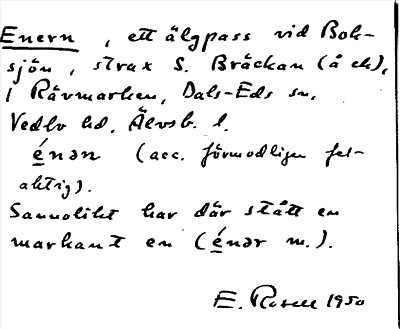 Enern, ett älgpass vid Bok-
sjön, strax S. Bräckan (å ek),
i Rävmarken, Dals-Eds sn,
Vedbo hd, Älvsb. l.
énən (acc. förmodligen fel-
aktig).
Sannolikt har där stått en
markant en (énər m.).
E. Rosell 1950